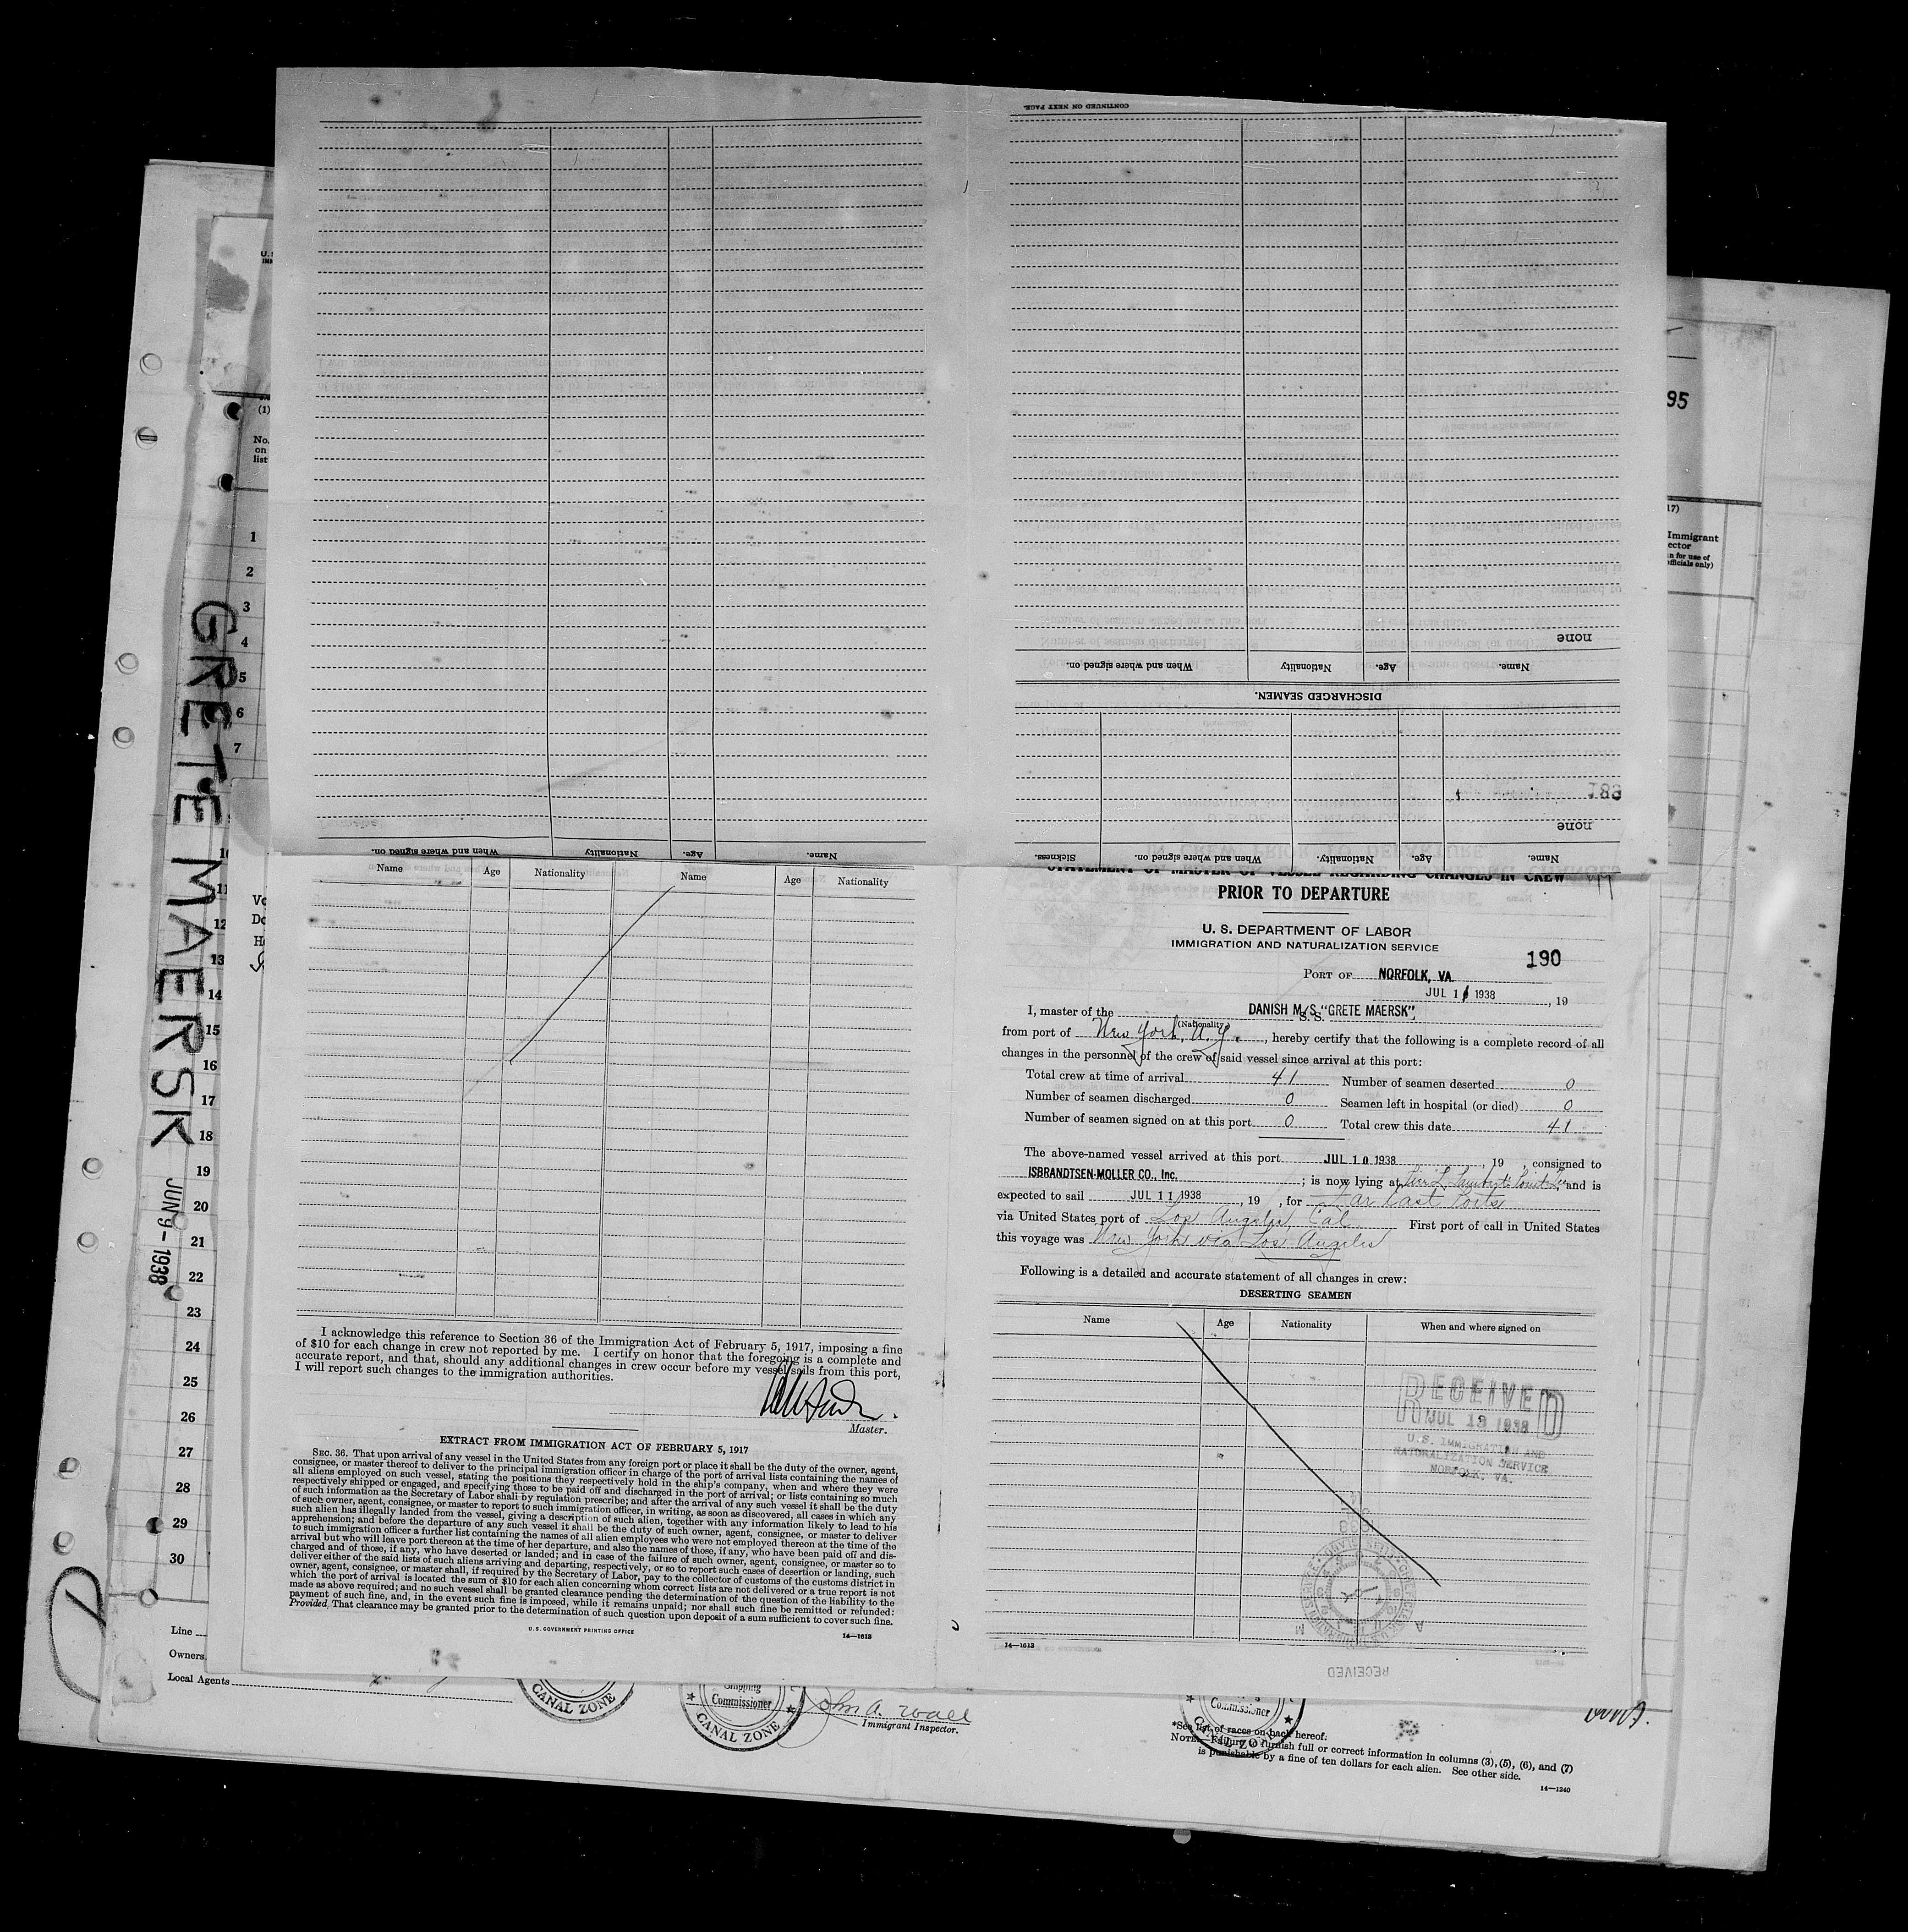 CONTINUED ON NEXT PAGE.
none
Name. Age. Nationality When and where signed on.
DISCHARGED SEAMEN.
183
none
Name. Age. Nationality. When and where signed on. Sickness.
Name. Age. Nationality When and where signed on.
95
17)
Immigrant
ector
n for use of
officials only)
(1)
No.
on
list
1
2
3
4
5
6
7
10
11
12
13
14
15
16
17
18
19
20
21
22
23
24
25
26
27
28
29
30
GRETE MAERSK
JUN 9 - 1938
Name Age Nationality Name Age Nationality
I acknowledge this reference to Section 36 of the Immigration Act of February 5, 1917, imposing a fine
of $10 for each change in crew not reported by me. I certify on honor that the foregoing is a complete and
accurate report, and that, should any additional changes in crew occur before my vessel sails from this port,
I will report such changes to the immigration authorities.
Master.
EXTRACT FROM IMMIGRATION ACT OF FEBRUARY 5, 1917
SEC. 36. That upon arrival of any vessel in the United States from any foreign port or place it shall be the duty of the owner, agent,
consignee, or master thereof to deliver to the principal immigration officer in charge of the port of arrival lists containing the names of
all aliens employed on such vessel, stating the positions they respectively hold in the ship's company, when and where they were
respectively shipped or engaged, and specifying those to be paid off and discharged in the port of arrival; or lists containing so much
of such information as the Secretary of Labor shall by regulation prescribe; and after the arrival of any such vessel it shall be the duty
of such owner, agent, consignee, or master to report to such immigration officer, in writing, as soon as discovered, all cases in which any
such alien has illegally landed from the vessel, giving a description of such alien, together with any information likely to lead to his
apprehension; and before the departure of any such vessel it shall be the duty of such owner, agent, consignee, or master to deliver
to such immigration officer a further list containing the names of all alien employees who were not employed thereon at the time of the
arrival but who will leave port thereon at the time of her departure, and also the names of those, if any, who have been paid off and dis-
charged and of those, if any, who have deserted or landed; and in case of the failure of such owner, agent, consignee, or master so to
deliver either of the said lists of such aliens arriving and departing, respectively, or so to report such cases of desertion or landing, such
owner, agent, consignee, or master shall, if required by the Secretary of Labor, pay to the collector of customs of the customs district in
which the port of arrival is located the sum of $10 for each alien concerning whom correct lists are not delivered or a true report is not
made as above required; and no such vessel shall be granted clearance pending the determination of the question of the liability to the
payment of such fine, and, in the event such fine is imposed, while it remains unpaid; nor shall such fine be remitted or refunded:
Provided, That clearance may be granted prior to the determination of such question upon deposit of a sum sufficient to cover such fine.
U.S. GOVERNMENT PRINTING OFFICE
14—1613
STATEMENT OF MASTER OF VESSEL REGARDING CHANGES IN CREW
PRIOR TO DEPARTURE
U. S. DEPARTMENT OF LABOR
IMMIGRATION AND NATURALIZATION SERVICE
190
PORT OF NORFOLK, VA.
JUL 11 1938, 19
I, master of the DANISH M/S "GRETE MAERSK",
(Nationality) S.S.
from port of New York, N.Y., hereby certify that the following is a complete record of all
changes in the personnel of the crew of said vessel since arrival at this port:
Total crew at time of arrival 41 Number of seamen deserted 0
Number of seamen discharged 0 Seamen left in hospital (or died) 0
Number of seamen signed on at this port 0 Total crew this date 41
The above-named vessel arrived at this port JUL 10 1938, 19 , consigned to
ISBRANDTSEN-MOLLER CO., Inc. ; is now lying at Pier L Lamberts Point, and is
expected to sail JUL 11 1938, 19 , for Far East Ports
via United States port of Los Angeles, Cal. First port of call in United States
this voyage was New York via Los Angeles
Following is a detailed and accurate statement of all changes in crew:
DESERTING SEAMEN
Name Age Nationality When and where signed on
RECEIVED
JUL 13 1938
U.S. IMMIGRATION AND
NATURALIZATION SERVICE
NORFOLK, VA.
14—1613
RECEIVED
Line
Owners
Local Agents
CANAL ZONE
Shipping
Commissioner
CANAL ZONE
John A. Wall
Immigrant Inspector.
Commissioner
*See list of races on back hereof.
NOTE.—Failure to furnish full or correct information in columns (3), (5), (6), and (7)
is punishable by a fine of ten dollars for each alien. See other side.
14—1240